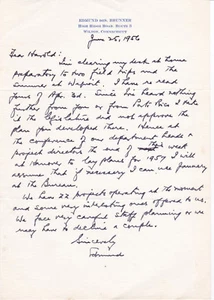 EDMUND DES. BRUNNER
HIGH RIDGE ROAD, ROUTE 2
WILTON, CONNECTICUT
June 25, 1956
Dear Harold:
I'm clearing my desk at home
preparatory to two field trips and the
summer at . I have re read
yours of Apr. 3d. Since I've heard nothing
further from you or from Puerto Rico I take it
the Legislature did not approve the
plan you developed there. Hence at
the conference of our department heads &
project directors the end of week
at Hanover to lay plans for 1957 I will
assume that if necessary I can use January
at the Bureau.
We have 22 projects operating at the moment
and some very interesting ones offered to us.
We face very careful staff planning or we
may have to decline a couple.
Sincerely
Edmund